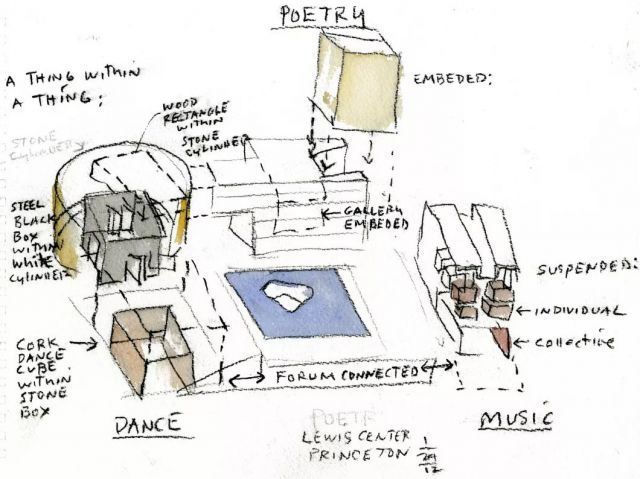 POETRY
A THING WITHIN
A THING;
EMBEDED:
WOOD
RECTANGLE
WITHIN
STONE
CYLINDER
STONE
CYLINDER
STEEL
BLACK
BOX
WITHIN
WHITE
CYLINDER
GALLERY
EMBEDED
SUSPENDED:
INDIVIDUAL
COLLECTIVE
CORK
DANCE
CUBE
WITHIN
STONE
BOX
FORUM CONNECTED
DANCE
MUSIC
POETR
LEWIS CENTER
PRINCETON 1/29/12